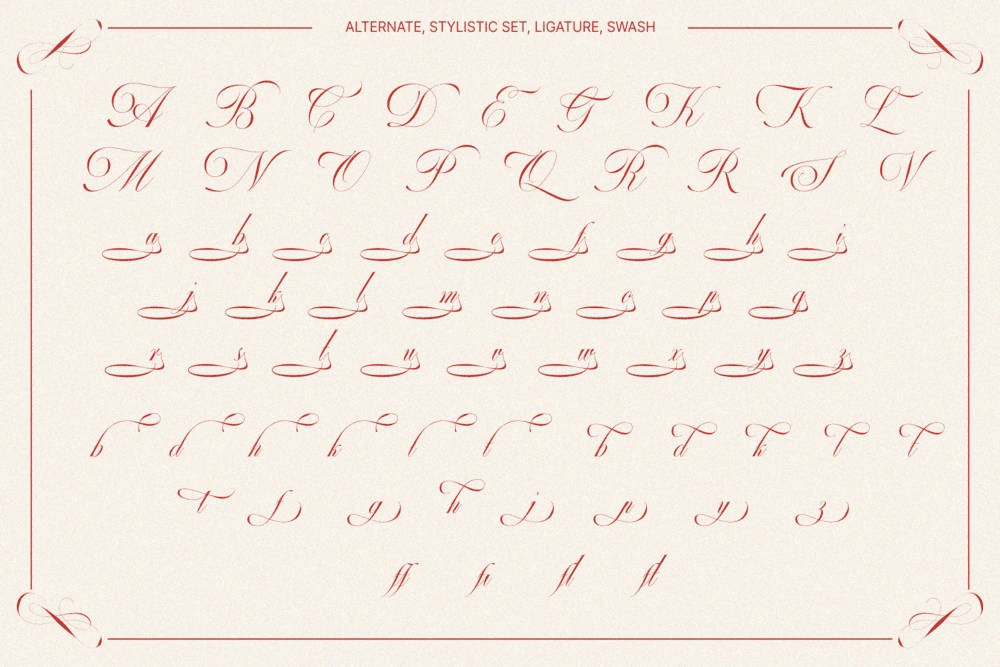 ALTERNATE, STYLISTIC SET, LIGATURE, SWASH
A B C D E G K K L
M N O P Q R R S V
a b c d e f g h i
j k l m n o p q
r s t u v w x y z
b d h k l l b d h l t
t f g h j p y z
ff fr fl fl